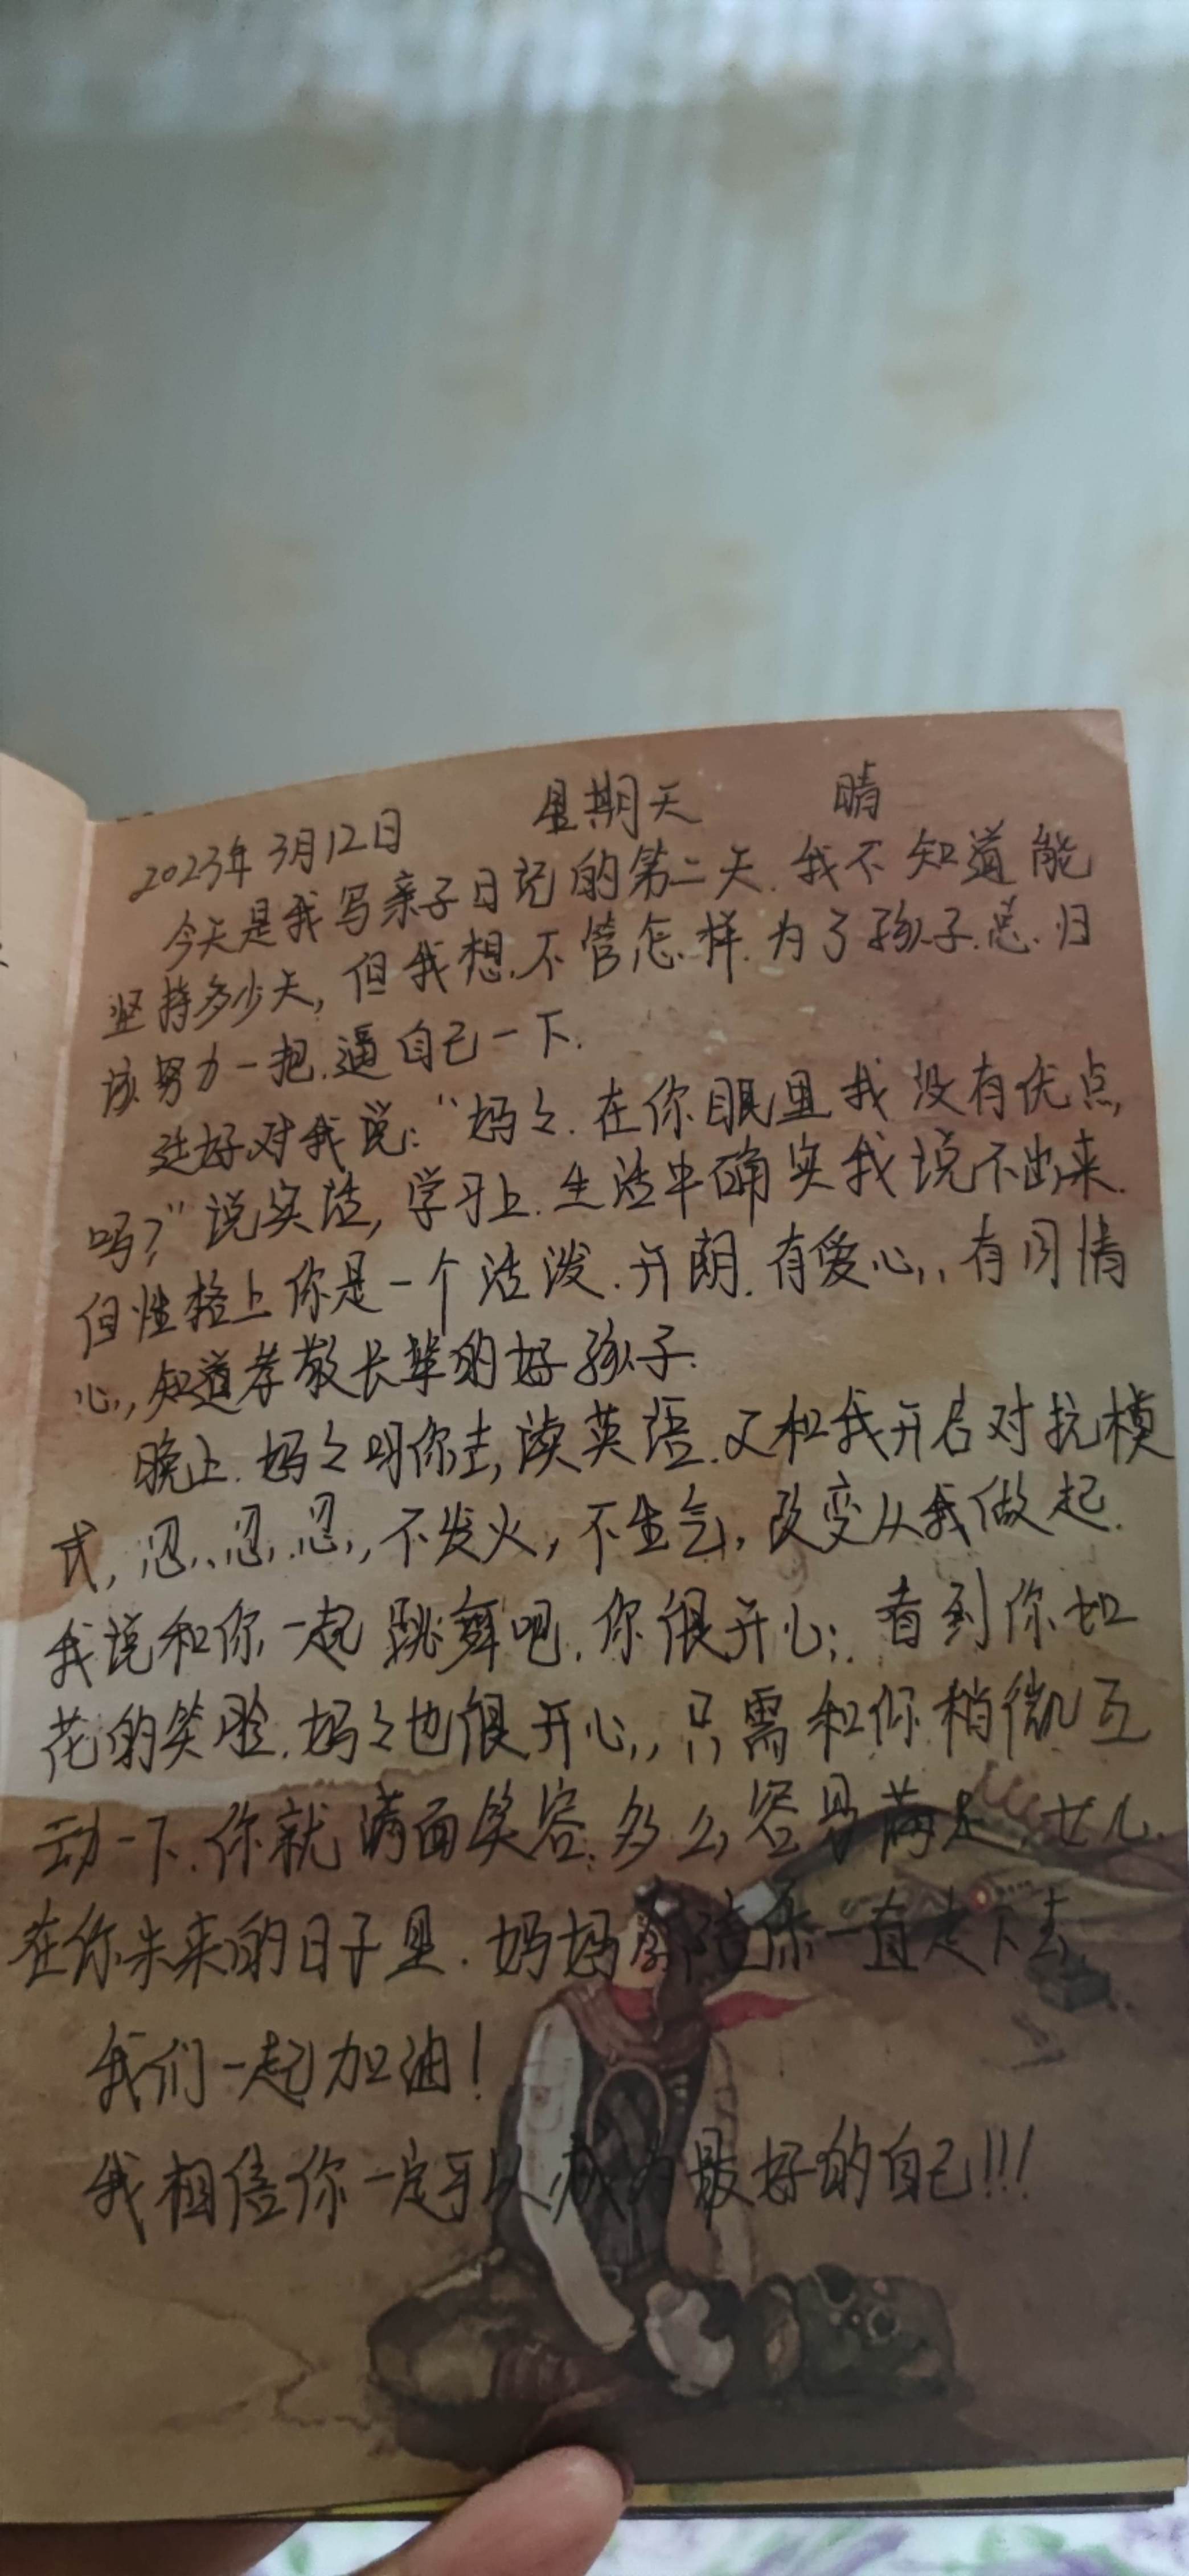 2023年3月12日 星期天 晴
今天是我写亲子日记的第二天.我不知道能
坚持多少天,但我想.不管怎样.为了孩子.总.归
该努力一把.逼自己一下.
对我说:“妈々.在你眼里我没有优点
吗?”说实话,学习上.生活中确实我说不出来.
但性格上你是一个活泼.开朗.有爱心,有同情
心,知道孝敬长辈的好孩子.
晚上.妈々叫你去,读英语.又和我开启对抗模
式,忍、忍.忍,不发火,不生气,改变从我做起.
我说和你一起跳舞吧.你很开心;.看到你如
花的笑脸.妈々也很开心,只需和你稍微互
动一下.你就满面笑容.多么容易满足,女儿.
在你未来的日子里.妈妈陪你一直走下去.
我们一起加油!
我相信你一定可以成为最好的自己!!!